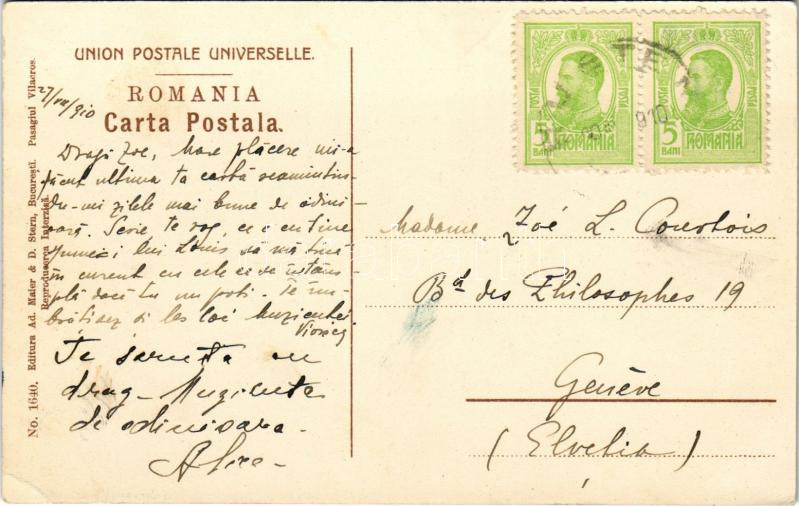 UNION POSTALE UNIVERSELLE.
ROMANIA
Carta Postala.
27/VII/910
Dragă Zoe, Mare plăcere mi-a
făcut ultima ta cartă reamintin-
du-mi zilele mai bune de odini-
oară. Scrie, te rog,
lui Louis să mă țină
în curent cu cele ce se întâm-
plă dacă tu nu poți. Te îm-
brățișez și
Viorica
Te saruta cu
drag
de odinioara.
Alice
No. 1640. Editura Ad. Maier & D. Stern, Bucureşti. Pasagiul Vilacros.
Reproducerea Interzisă.
POSTA
5
BANI
ROMANIA
POSTA
5
BANI
ROMANIA
910
Madame Zoé L. Courtois
Bd des Philosophes 19
Genève
(Elveţia)